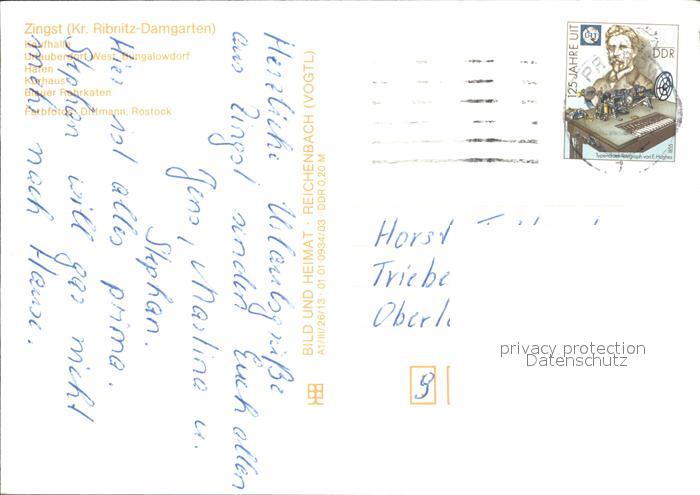 Zingst (Kr. Ribnitz-Damgarten)
Kaufhalle
Urlauberdorf West, Bungalowdorf
Hafen
Kurhaus
Blauer Rohrkaten
Farbfotos: Dittmann, Rostock
Herzliche Urlaubsgrüße
aus Zingst senden Euch allen
Jens, Martina u.
Stephan.
Hier ist alles prima.
Stephan will gar nicht
mehr nach Hause.
BILD UND HEIMAT · REICHENBACH (VOGTL)
A1/III/26/13 · 01 01 0934/03 DDR 0,20 M
125 JAHRE UIT
UIT
DDR
Typendruck-Telegraph von E. Hughes
1855
Horst
Triebe
Oberl
9
privacy protection
Datenschutz